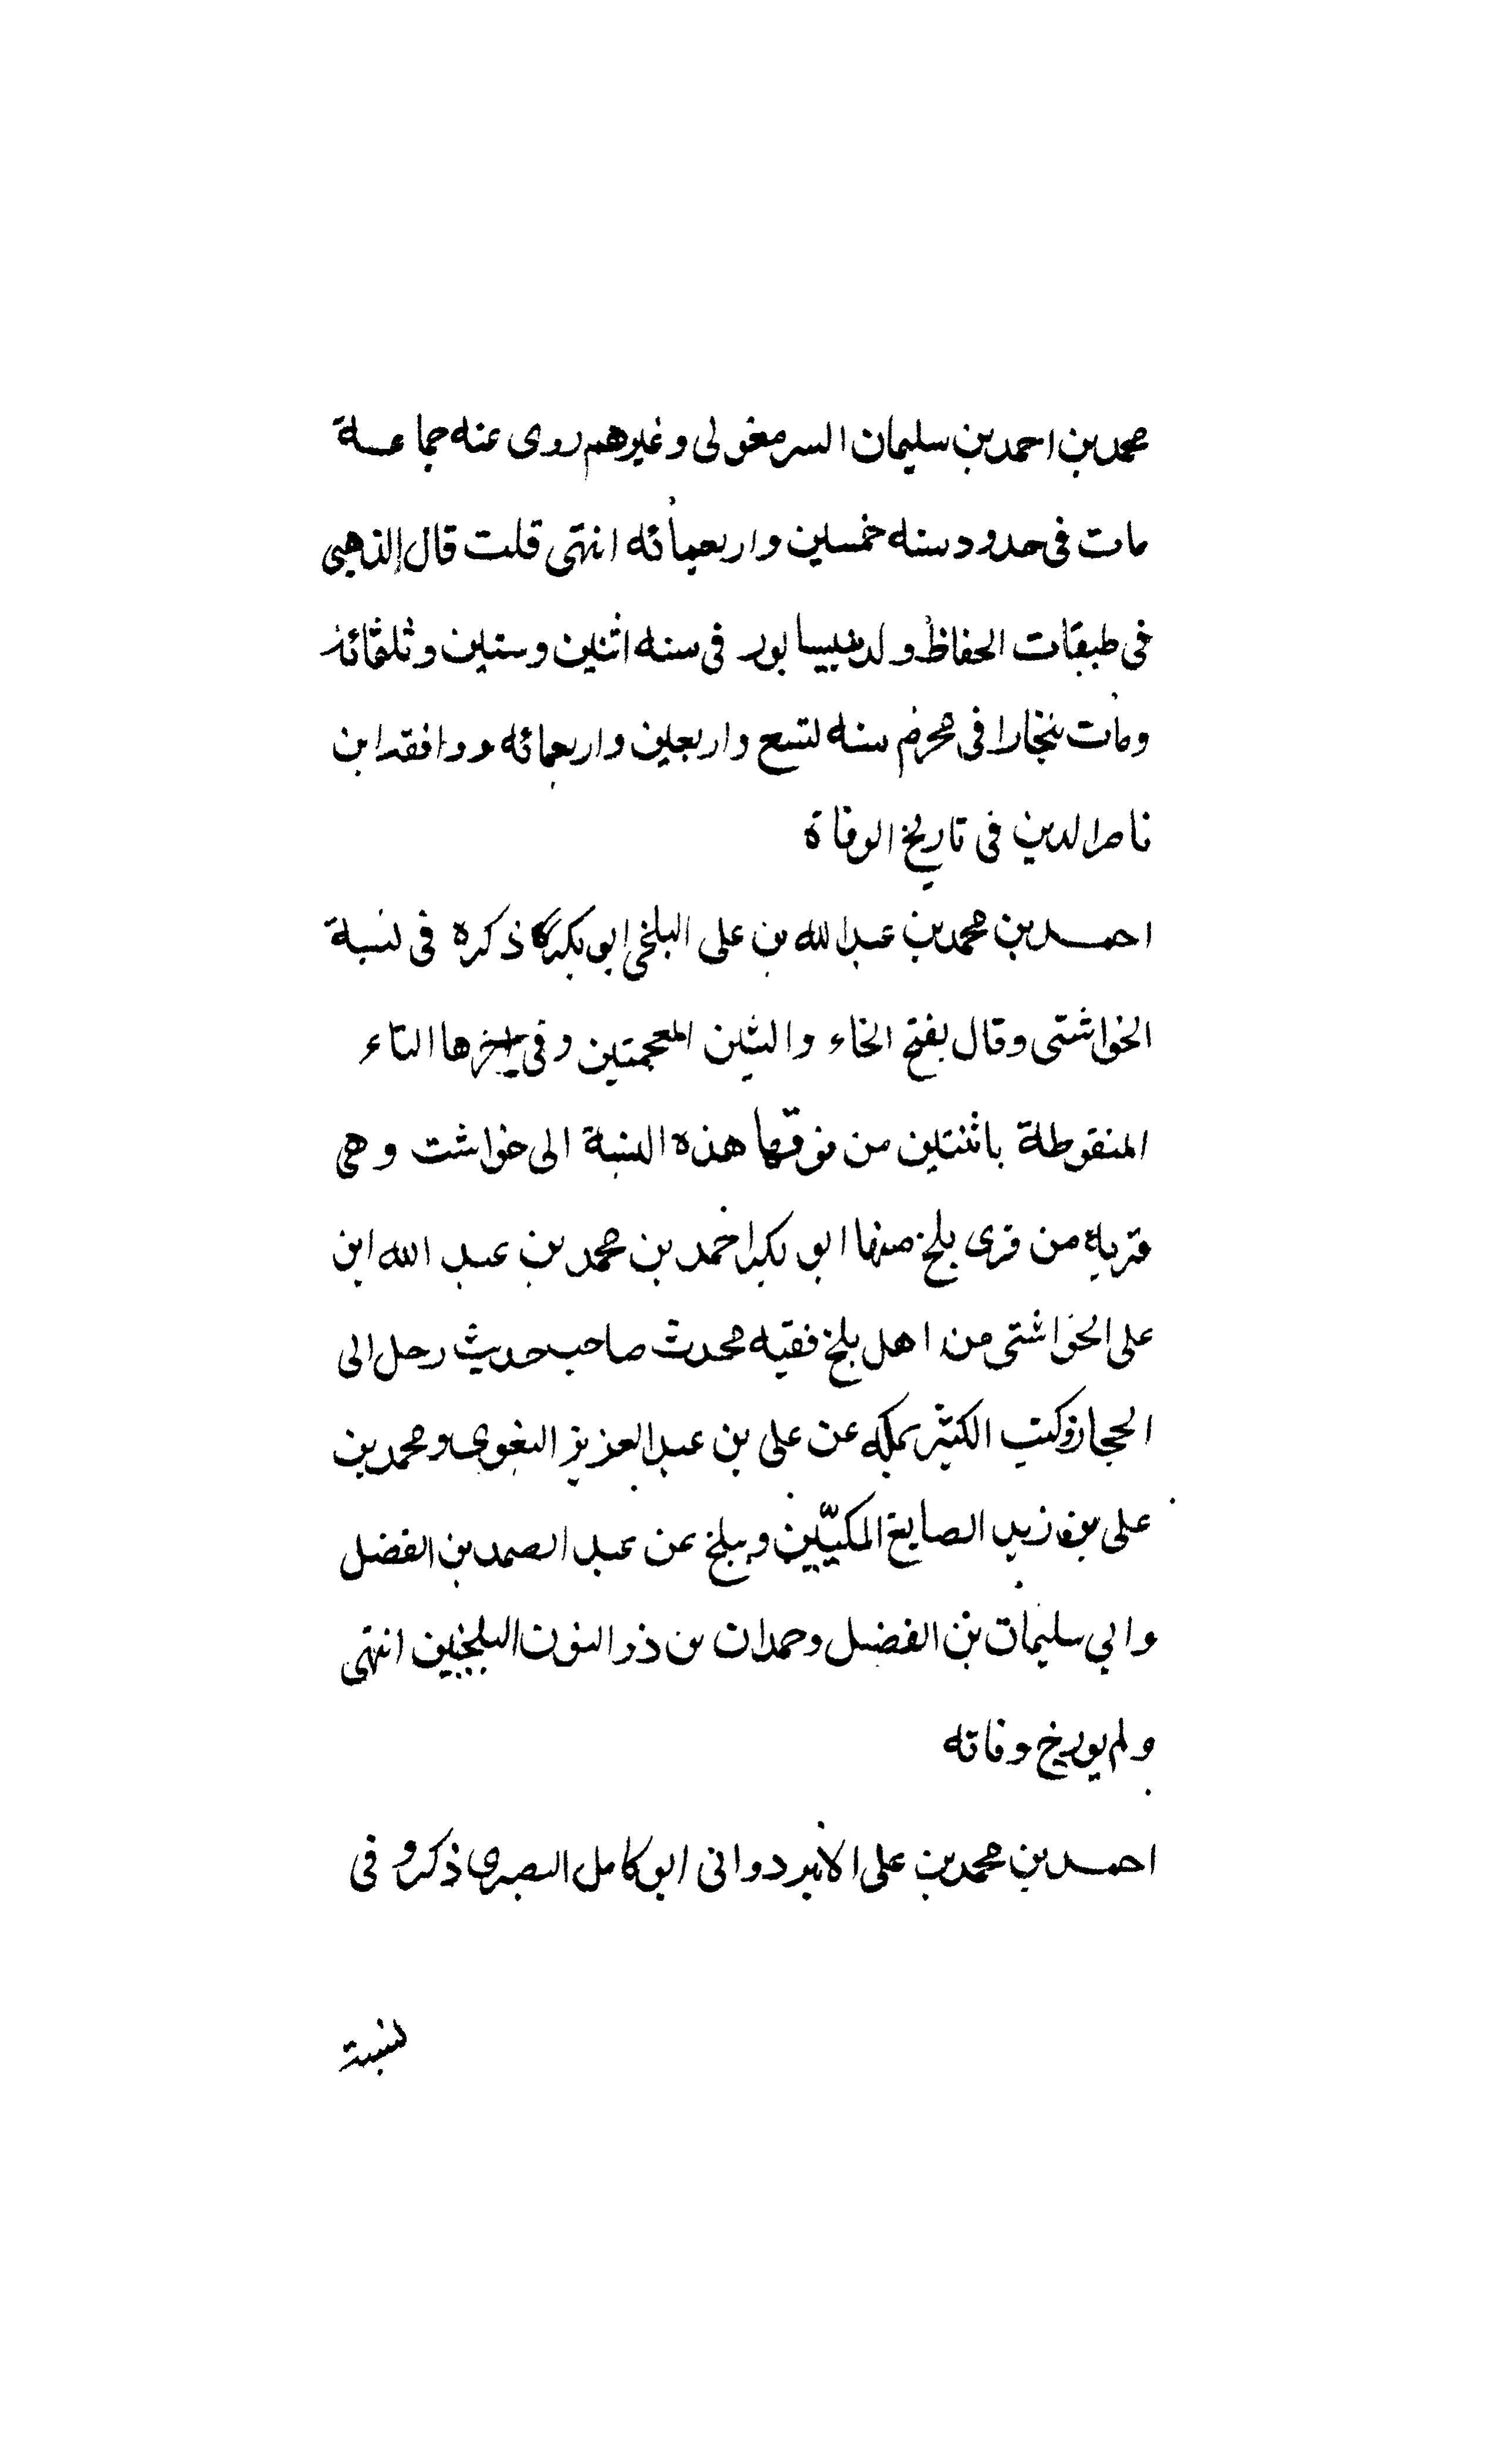 محمد بن احمد بن سليمان السرمغولى وغيرهم روى عنه جماعة
مات فى حدود سنه خمسين واربعمائه انتهى قلت قال الذهبى
فى طبقات الحفاظ ولد بنيسابور فى سنه اثنين وستين وثلثمائة
ومات ببخارا فى محرم سنه تسع واربعين واربعمائه ووافقه ابن
ناصر الدين فى تاريخ الوفاة
احمد بن محمد بن عبد الله بن على البلخى ابو بكر كا ذكره فى نسبة
الخواشتى وقال بفتح الخاء والشين المعجمتين وفى اخرها التاء
المنقوطة باثنتين من فوقها هذه النسبة الى خواشت وهى
قرية من قرى بلخ منها ابو بكر احمد بن محمد بن عبد الله ابن
على الخواشتى من اهل بلخ فقيه محدث صاحب حديث رحل الى
الحجاز وكتب الكثير بمكه عن على بن عبد العزيز البغوى ومحمد بن
على بن زيد الصايغ المكيّين وببلخ عن عبد الصمد بن الفضل
وابي سليمان بن الفضل وحمدان بن ذو النون البلخيين انتهى
ولم يورخ وفاته
احمد بن محمد بن على الانبردوانى ابو كامل البصرى ذكرو فى
نسبة